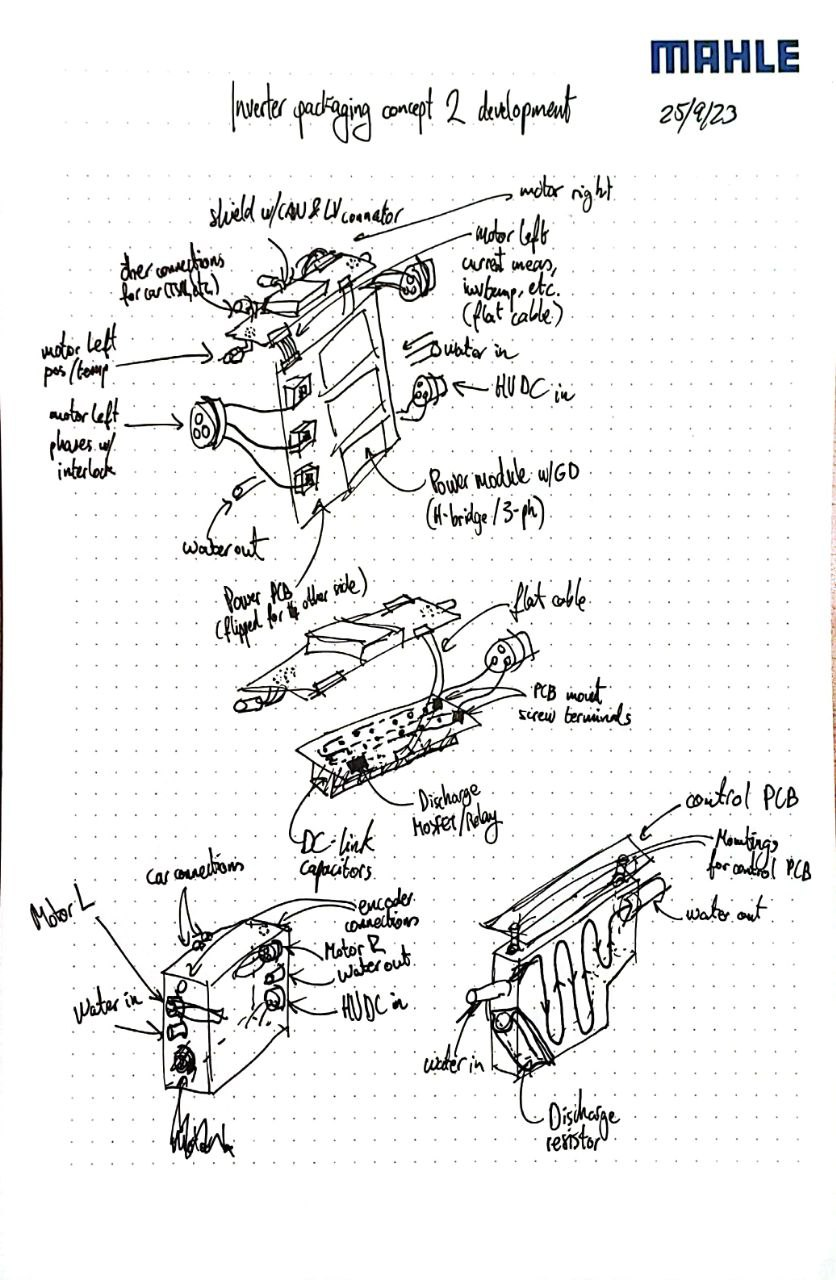 MAHLE
Inverter packaging concept 2 development
25/9/23
motor right
shield w/CAN & LV connator
motor left
current meas,
inv temp, etc.
(flat cable)
other connections
for car (TSAL, etc.)
motor left
pos/temp
water in
HVDC in
motor left
phases w/
interlock
Power module w/GD
(H-bridge/3-ph)
water out
Power PCB
(flipped for other side)
flat cable
PCB mount
screw terminals
Discharge
Mosfet/Relay
DC-link
capacitors
control PCB
Mountings
for control PCB
water out
car connections
Motor L
encoder
connections
Motor R
water out
HVDC in
Water in
water in
Discharge
resistor